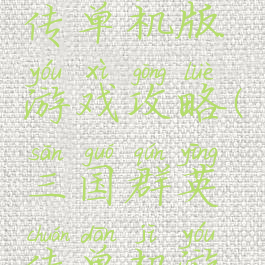 传单机版
yóu xì gōng lüè
游戏攻略(
sān guó qún yīng
三国群英
chuán dān jī yóu
传单机游